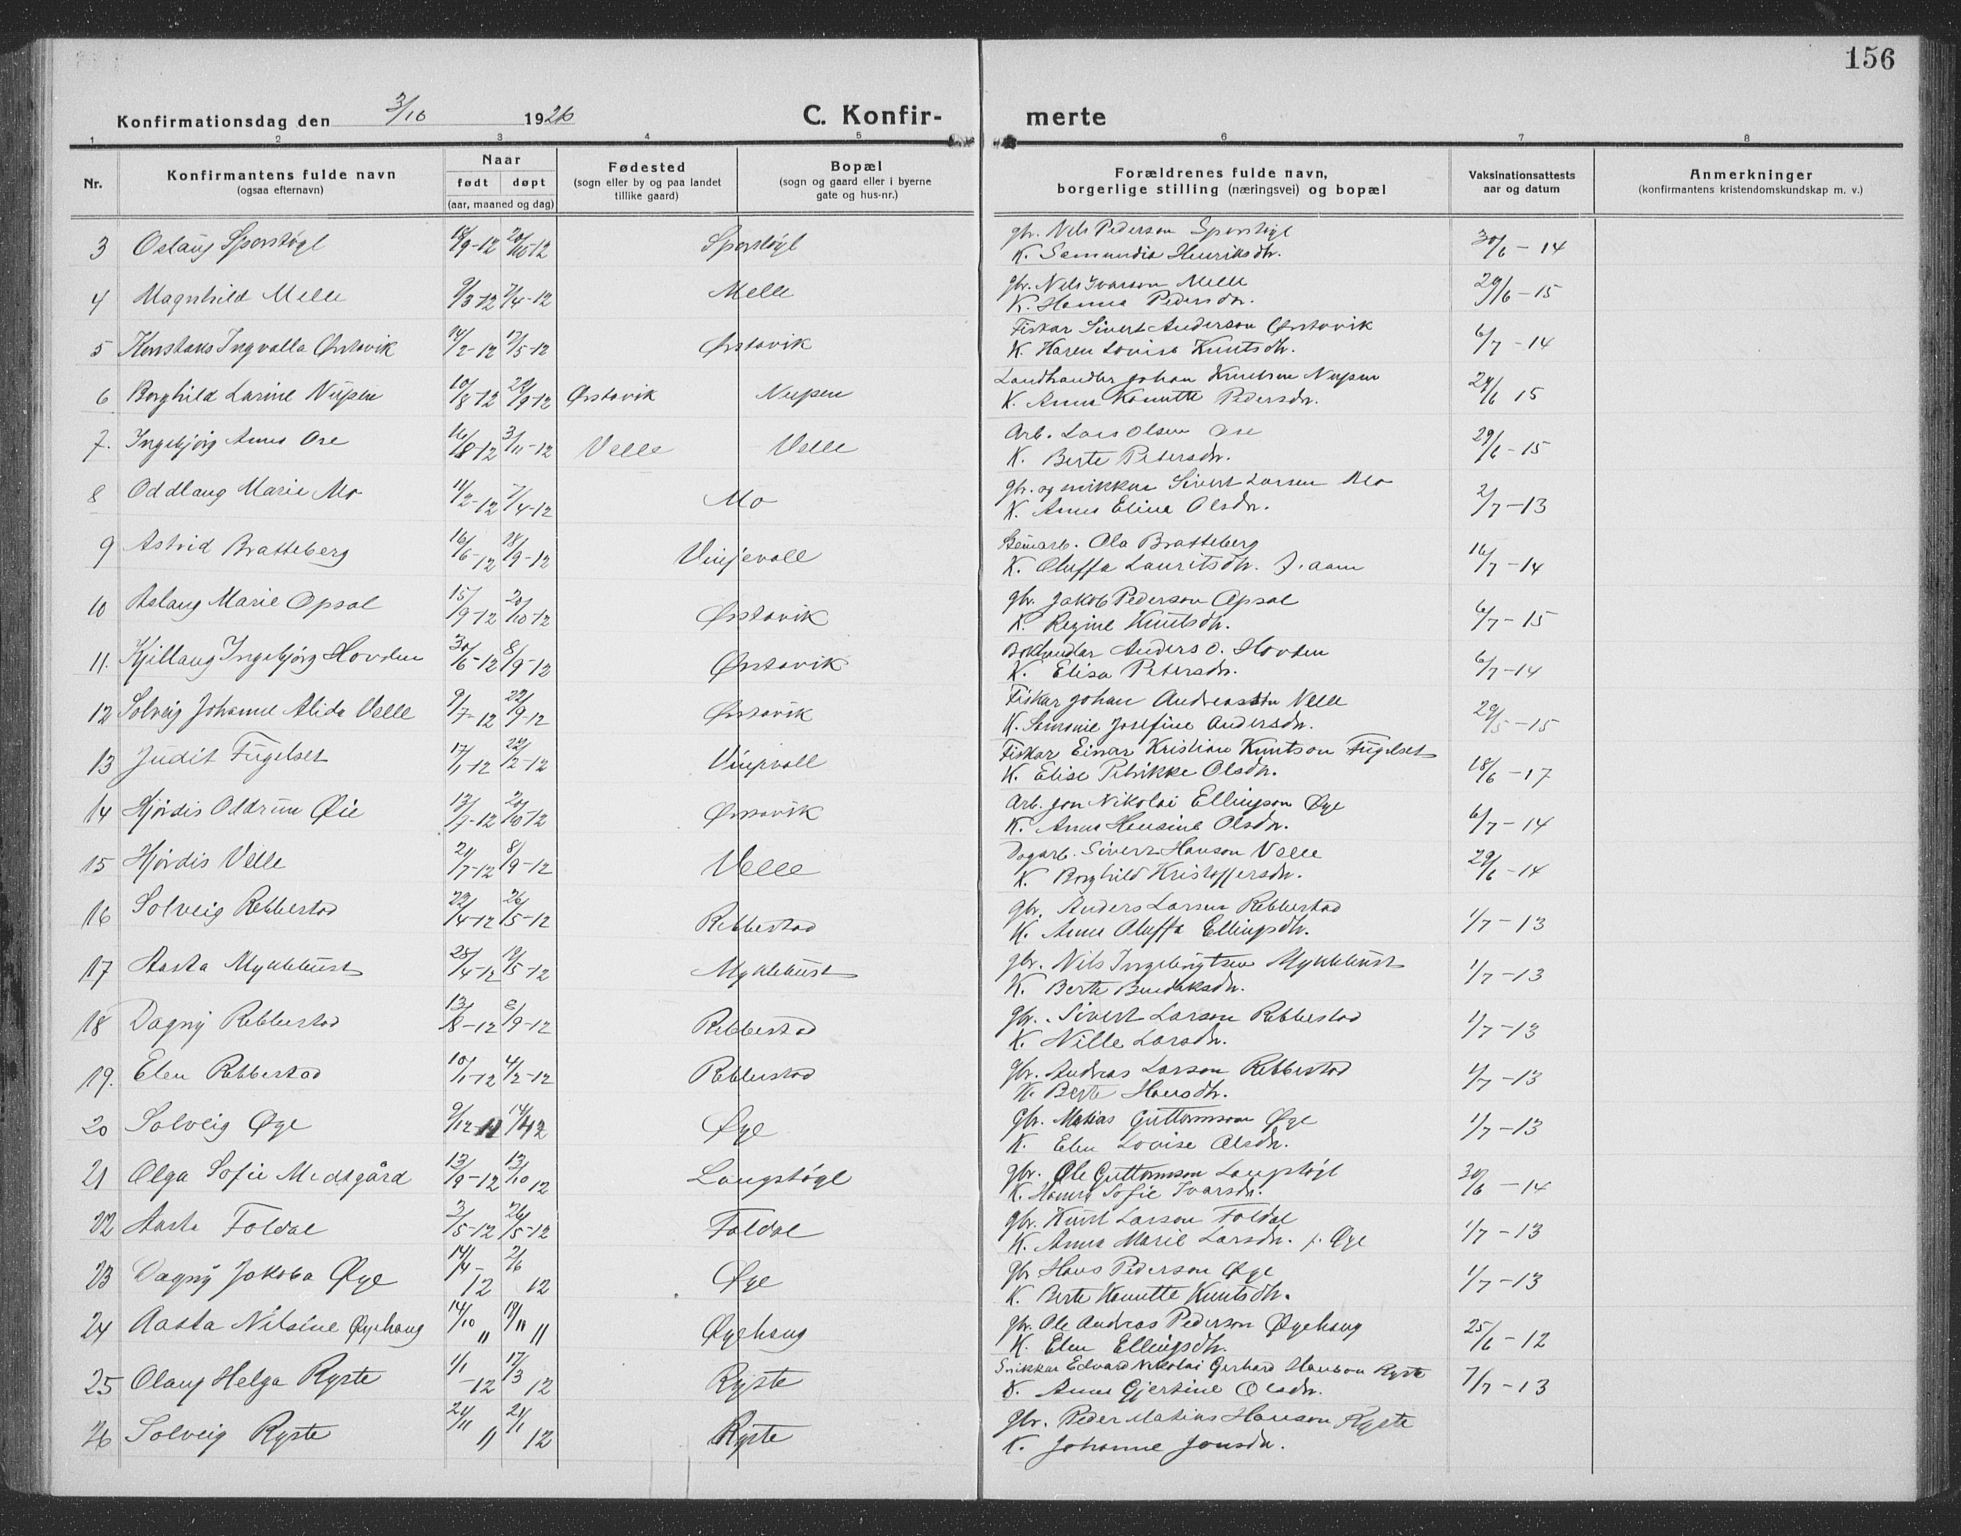 156
Konfirmationsdag den 3/10 1926 C. Konfir- merte
1 2 3 4 5 6 7 8
Nr. Konfirmantens fulde navn (ogsaa efternavn) Naar født døpt (aar, maaned og dag) Fødested (sogn eller by og paa landet tillike gaard) Bopæl (sogn og gaard eller i byerne gate og hus-nr.) Forældrenes fulde navn, borgerlige stilling (næringsvei) og bopæl Vaksinationsattests aar og datum Anmerkninger (konfirmantens kristendomskundskap m. v.)
3 Oslaug Sporstøyl 18/9-12 20/10-12 Sporstøyl gbr. Nils Pederson Sporstøyl 30/6-14
K. Semundia Henriksdtr.
4 Magnhild Melle 9/3-12 7/4-12 Melle gbr. Nils Ivarson Melle 29/6-15
K. Hanna Pedersdtr.
5 Konstanse Ingvalla Ørstavik 14/2-12 17/5-12 Ørstavik Fiskar Sivert Anderson Ørstavik 6/7-14
K. Karen Lovise Knutsdtr.
6 Borghild Larine Nupen 10/8-12 29/9-12 Ørstavik Nupen Landhandler Johan Knutson Nupen 29/6 15
K. Anna Kanutte Pedersdtr.
7. Ingebjørg Anna Ose 16/8-12 3/11-12 Velle Velle Arb. Lars Olsen Ose 29/6-15
K. Berte Petersdtr.
8 Oddlaug Marie Mo 11/2-12 7/4-12 Mo gbr. og snikkar Sivert Larsen Mo 2/7-13
K. Anna Elina Olsdtr.
9 Astrid Bratteberg 16/6-12 28/9-12 Vinjevoll Ola Bratteberg 16/7-14
K. Oluffa Lauritsdtr.
10 Aslaug Marie Opsal 15/9-12 20/10-12 Ørstavik gbr. Jakob Pederson Opsal 6/7-15
K. Regine Knutsdtr.
11. Kjellaug Ingebjørg Hovden 30/6-12 8/9-12 Ørstavik Bokhandlar Anders O. Hovden 6/7-14
K. Elisa Petersdtr.
12 Solveig Johanne Alida Velle 9/7-12 22/9-12 Ørstavik Fiskar Johan Andreasson Velle 29/5-15
K. Josefine Andersdtr.
13 Judit Fugelset 17/1-12 22/2-12 Vinjevoll Fiskar Einar Kristian Knutson Fugelset 18/6-17
K. Elise Petrikke Olsdtr.
14 Hjørdis Oddrun Øie 13/7-12 20/10-12 Ørstavik Arb. Jon Nikolai Ellingson Øye 6/7-14
K. Anna Hensine Olsdtr.
15 Hjørdis Velle 21/7-12 8/9-12 Velle Dagarb. Sivert Hanson Velle 29/6-14
K. Borghild Kristoffersdtr.
16 Solveig Rebbestad 22/4-12 26/5-12 Rebbestad gbr. Anders Larsen Rebbestad 1/7-13
K. Anna Oluffa Ellingsdtr.
17 Aasta Myklebust 28/4-12 19/5-12 Myklebust gbr. Nils Ingebrigtsen Myklebust 1/7-13
K. Berte Bendiksdtr.
18 Dagny Rebbestad 13/8-12 8/9-12 Rebbestad gbr. Sivert Larson Rebbestad 1/7-13
K. Nille Larsdtr.
19. Elen Rebbestad 10/1-12 4/2-12 Rebbestad gbr. Andreas Larson Rebbestad 1/7-13
K. Berte Hansdtr.
20 Solveig Øye 9/12-11 14/1 12 Øye gbr. Matias Guttormson Øye 1/7-13
K. Elen Lovise Olsdtr.
21 Olga Sofie Midtgård 13/9-12 13/10 12 Langstøyl gbr. Ole Guttormson Langstøyl 30/6-14
K. Hanna Sofie Ivarsdtr.
22 Aasta Foldal 3/5-12 26/5-12 Foldal gbr. Knut Larson Foldal 1/7-13
K. Anna Marie Larsdtr. f. Øye
23 Dagny Jakoba Øye 14/4-12 2/6 12 Øye gbr Hans Pederson Øye 1/7-13
K. Berte Kanutte Knutsdtr.
24 Aasta Nilsine Øyehaug 14/10 11 19/11 11 Øyehaug gbr. Ole Andreas Pederson Øyehaug 25/6-12
K. Elen Ellingsdtr.
25 Olaug Helga Ryste 1/1-12 17/3 12 Ryste Snikkar Edvard Nikolai Gerhard Hanson Ryste 7/7-13
K. Anna Gjertine Olsdtr.
26 Solveig Ryste 21/11 11 21/1 12 Ryste gbr. Peder Matias Hanson Ryste
K. Johanne Jonsdtr.